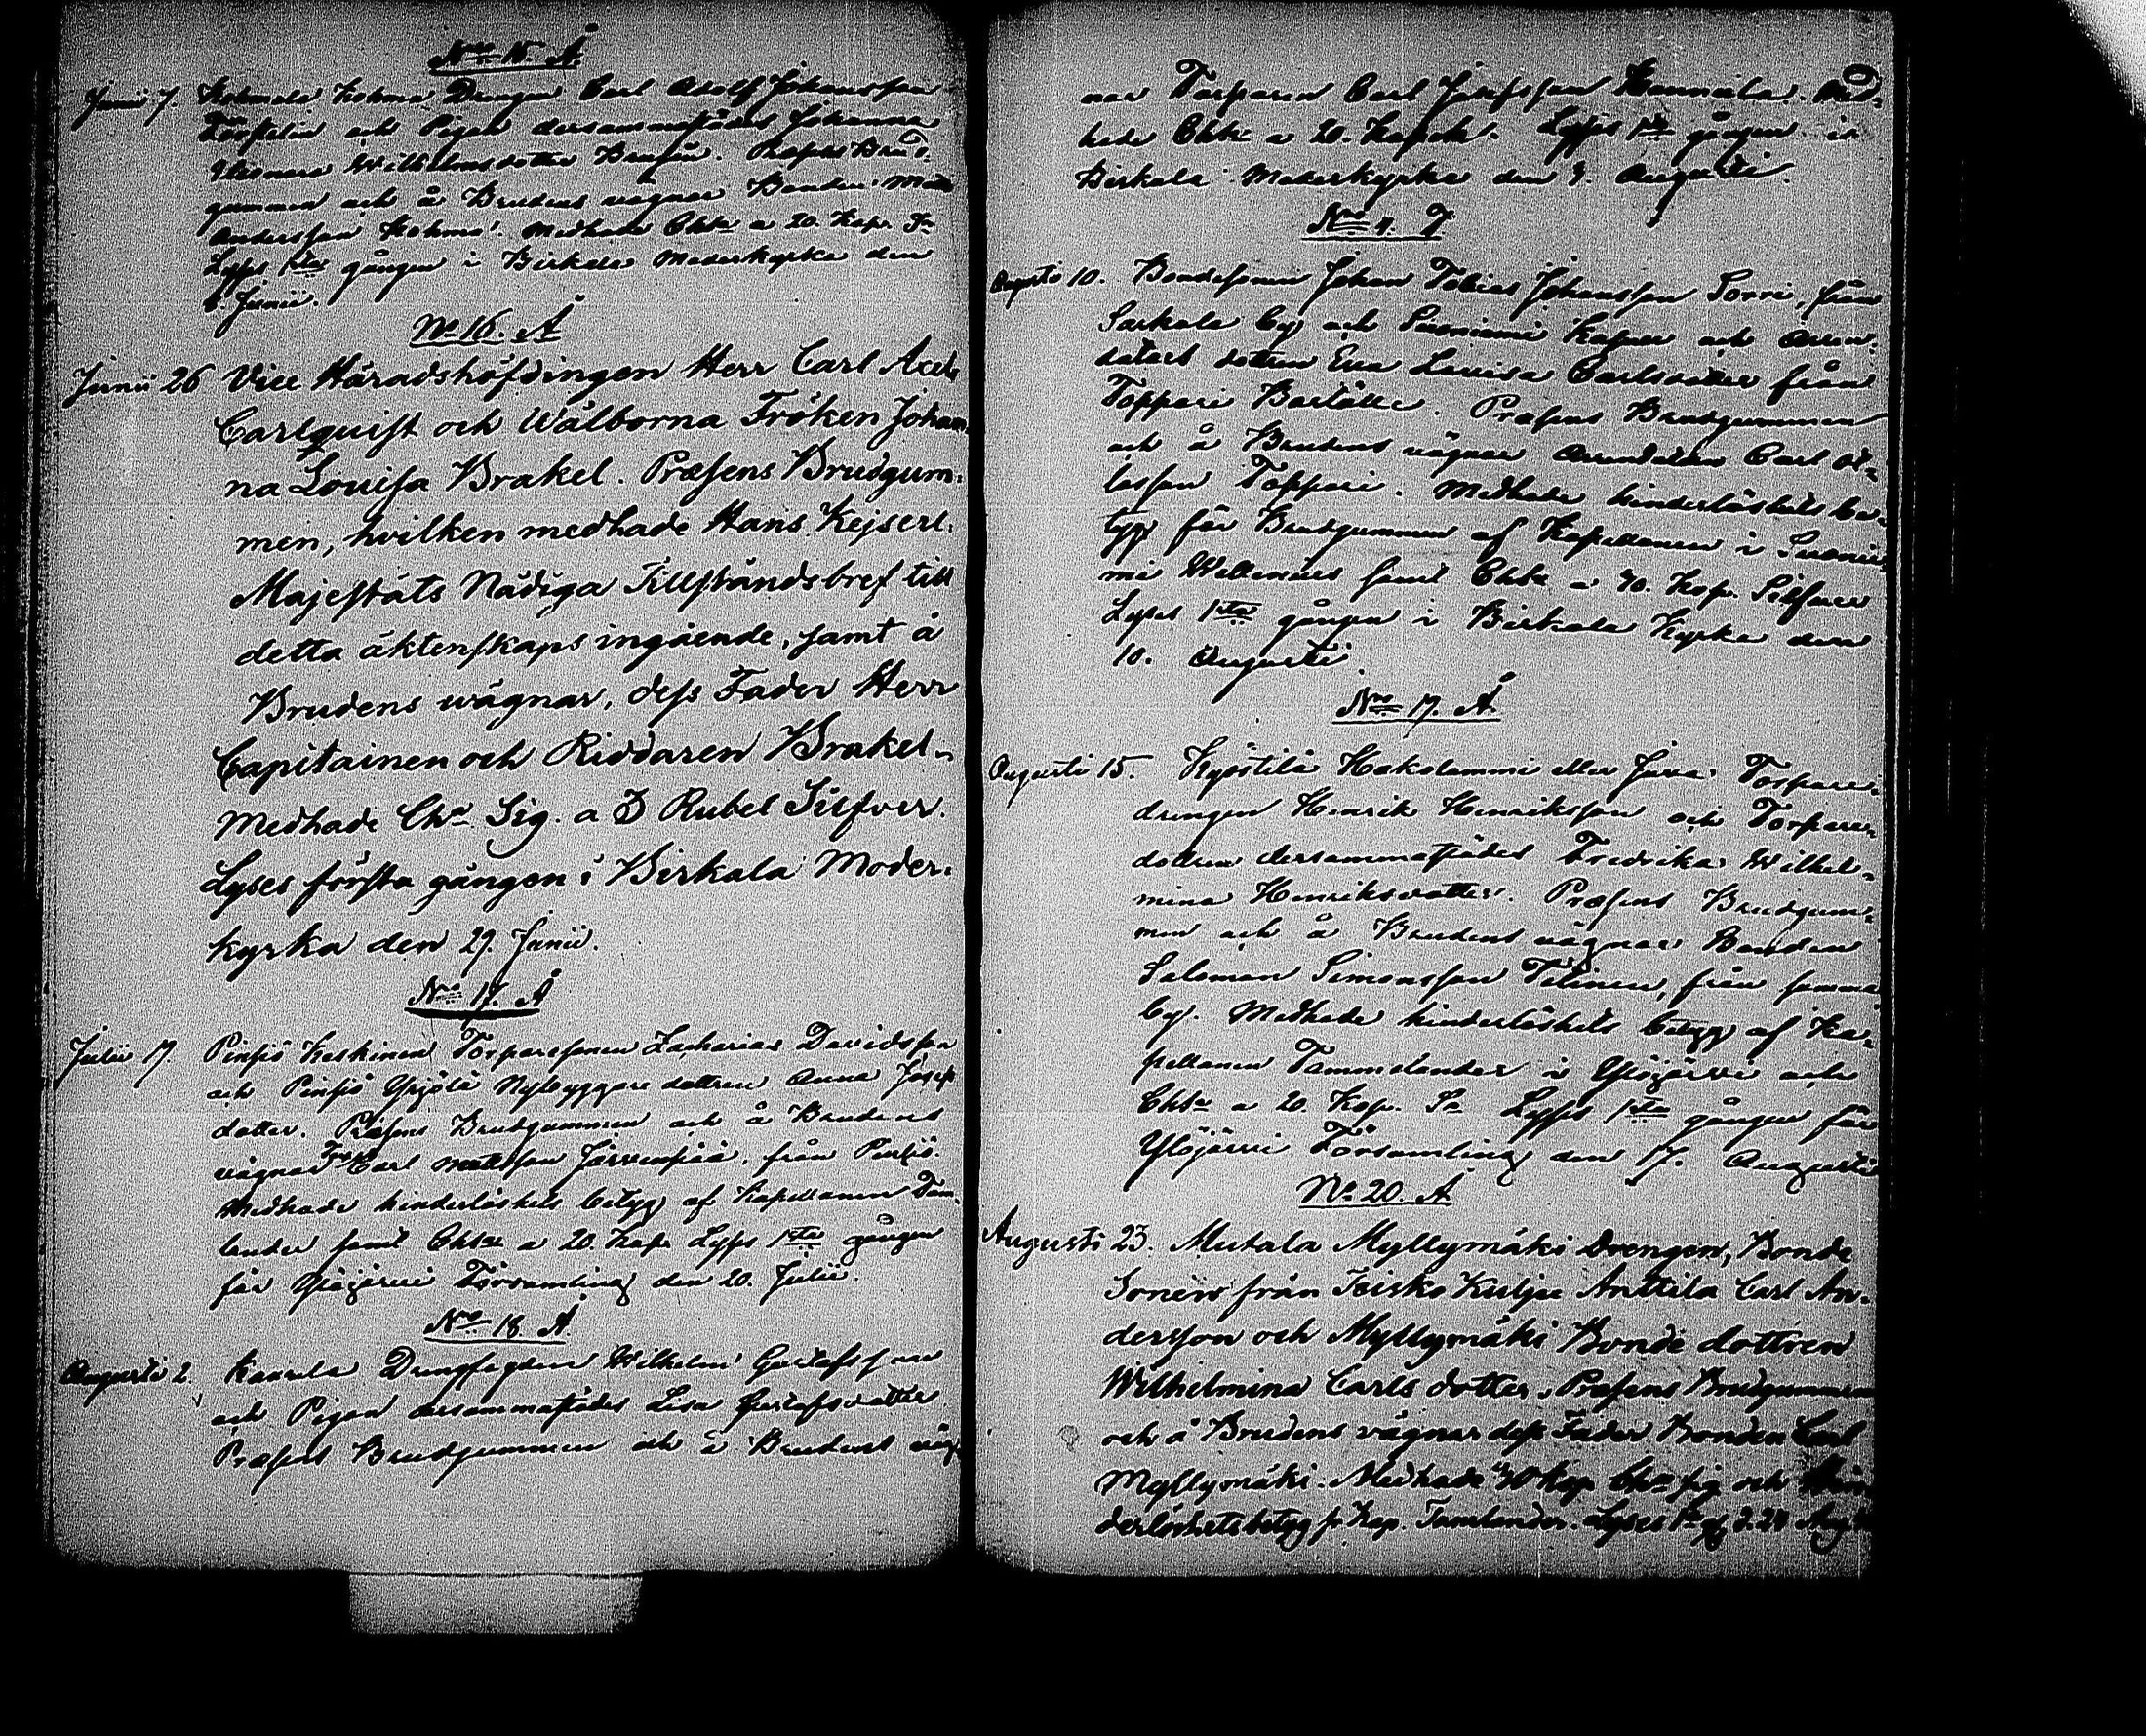 No 15. Å
Junii 7. Kohmala Kohma Drengen Carl Adolf Johansson
och Pigan dersammastädes Johanna
Eleonora Wilhelmsdotter. Præsens Brud-
gummen och å Brudens vägnar Bonden Matts
Andersson Kohma. Medhade Chtæ a 20. Kop. Sr
Lyses 1sta gången i Birkala Moderkyrka den
8. Junii.
No 16. Å
Junii 26 Vice Häradshöfdingen Herr Carl Axel
Carlquist och Wälborna Fröken Johan-
na Louisa Brakel. Præsens Brudgum-
men, hvilken medhade Hans Kejserl.
Majestäts Nådiga Tillståndsbref till
detta äktenskaps ingående, samt å
Brudens wägnar, dess Fader Herr
Capitainen och Riddaren Brakel.
Medhade Cha Sig. a 3 Rubel Silfver.
Lyses första gången i Birkala Moder-
kyrka den 29. Junii.
No 17. Å
Julii 17. Pinsiö Keskinen Torparesonen Zacharias Davidsson
och Pinsiö Yrjölä Nybyggare dottren Anna Josefs
dotter. Præsens Brudgummen och å Brudens
vägnar Carl Mattsson Järvenpää, från Pinsiö.
Medhade hinderlöshets betyg af Kapellanen Tam-
lander samt Chtæ a 20. Kop. Lyses 1sta gången
för Ylöjärvi Församling den 20. Julii.
No 18. Å
Augusti 2. Kaurila Drengfogden Wilhelm Gustafsson
och Pigan dersammastädes Lisa Gustafsdotter
Præsens Brudgummen och å Brudens väg-
nar Torparen Carl Josefsson Hannula. Med-
hade Chtæ a 20. Kopek. Lyses 1sta gången i
Birkala Moderkyrka den 3. Augusti.
No 4. T
Augusti 10. Bondesonen Johan Tobias Johansson Sorri, från
Sarkola by och Suoniemi Kapell och Arren-
dators dottren Eva Lovisa Carlsdotter från
Toppari. Præsens Brudgummen
och å Brudens vägnar Arrendatorn Carl
Toppari. Medhade hinderlöshets be-
tyg för Brudgummen af Kapellanen i Suonie-
mi Wellenius samt Chtæ a 40. Kop. Silfver
Lyses 1sta gången i Birkala Kyrka den
10. Augusti
No 19. Å
Augusti 15. Kyöstilä Hakolammi eller Torpare-
drengen Henrik Henriksson och Torpare-
dottren dersammastädes Fredrika Wilhel-
mina Henriksdotter. Præsens Brudgum-
men och å Brudens vägnar Bonden
Salomon Simonsson Tilinen, från samma
by. Medhade hinderlöshets betyg af Ka-
pellanen Tammelander i Ylöjärvi och
Chtæ a 20. Kop. Sr Lyses 1sta gången för
Ylöjärvi Församling den 17. Augusti
No 20. Å
Augusti 23. Mutala Myllymäki Drengen, Bonde
Sonen från Teisko Kulju Anttila Carl An-
dersson och Myllymäki Bonde dottren
Wilhelmina Carls dotter, Præsens Brudgummen
och å Brudens vägnar dess Fader Bonden Carl
Myllymäki. Medhade 40 Kop. Cha sig och Hin-
derlöshetsbetyg fr Kap. Tamelander. Lyses 1a g d. 24 Aug.